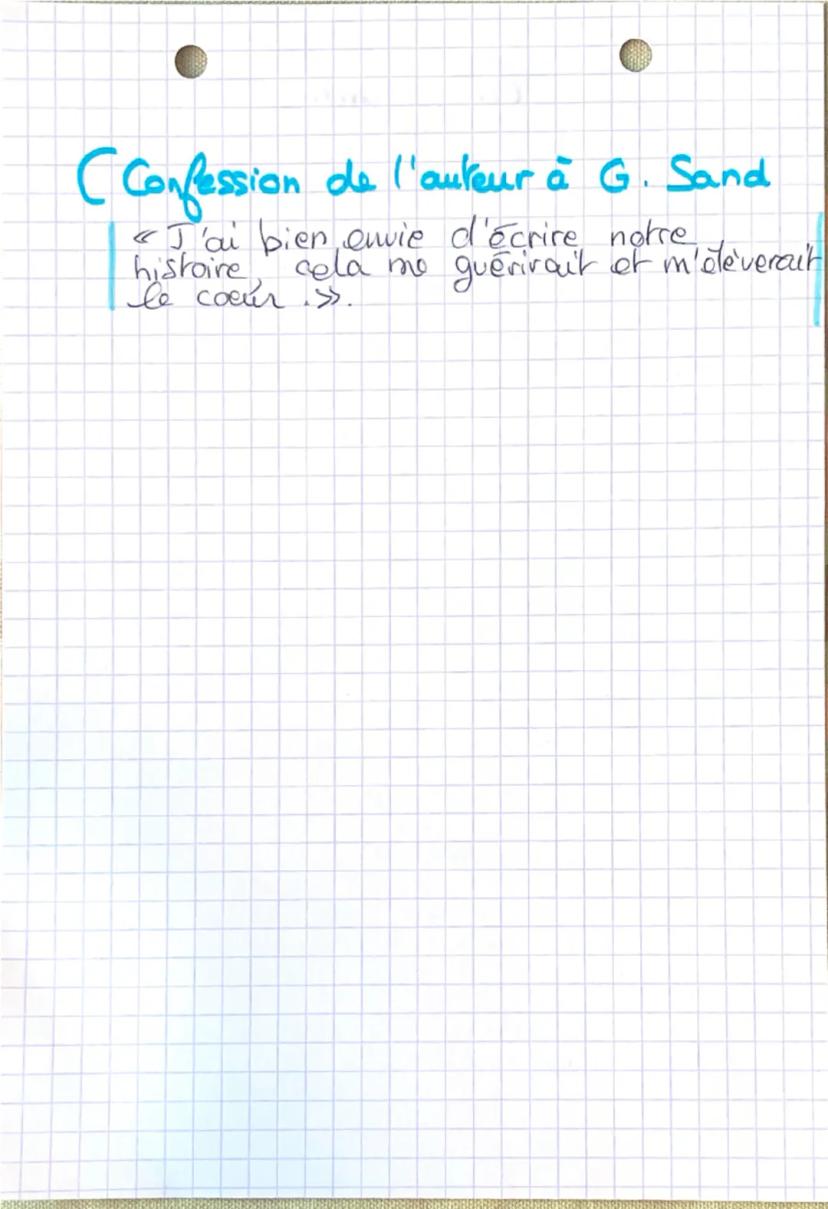 ( Confession de l'auteur à G. Sand
« J'ai bien envie d'écrire notre
histoire, cela me guérirait et m'élèverait
le coeur .».